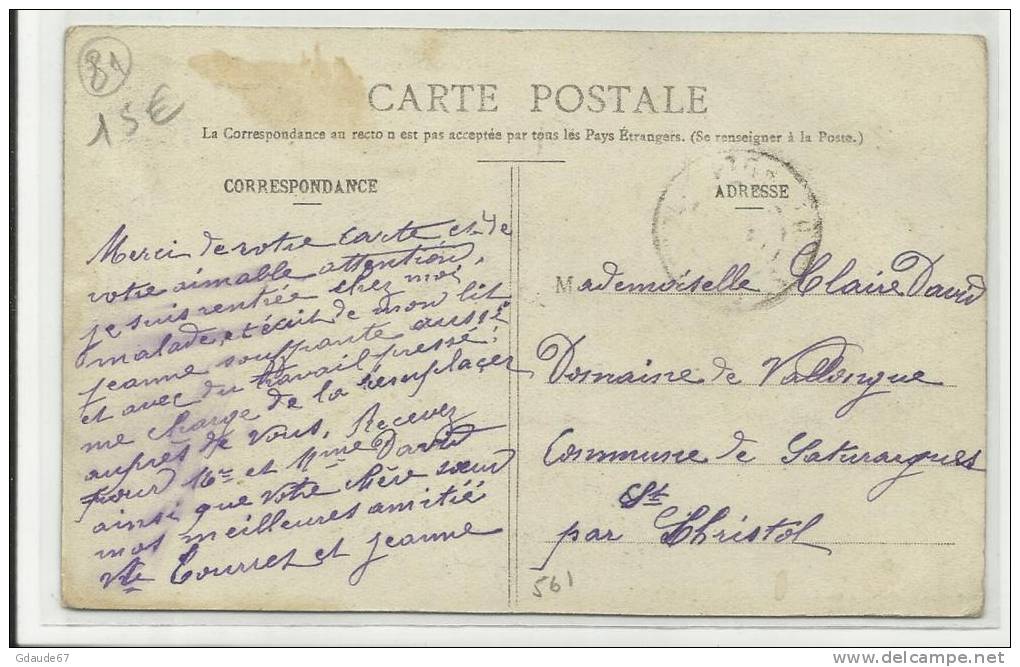 81
15€
CARTE POSTALE
La Correspondance au recto n est pas acceptée par tous les Pays Étrangers. (Se renseigner à la Poste.)
CORRESPONDANCE
ADRESSE
Merci de votre carte et de
votre aimable attention,
je suis rentrée chez moi
malade, et écrit de mon lit
jeanne souffrante aussi
et avec du travail pressé!
me charge de la remplacer
auprès de vous, Recevez
pour Mr et Mme David
ainsi que votre chère sœur
mes meilleures amitié
Vve Tourret et jeanne
Mademoiselle Claire David
Domaine de Vallongue
Commune de Saturargues
par St Christol
561
Gdaude67
http://www.delcampe.net